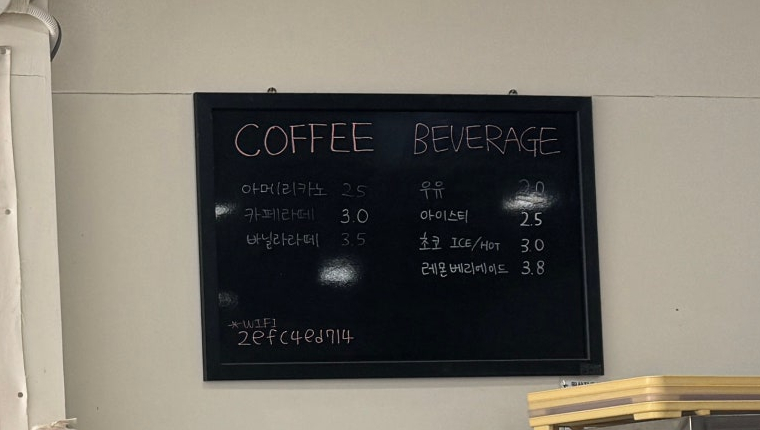 COFFEE
아메리카노 2.5
카페라떼 3.0
바닐라라떼 3.5
*WIFI
2efc4ed714
BEVERAGE
우유 2.0
아이스티 2.5
초코 ICE/HOT 3.0
레몬베리에이드 3.8